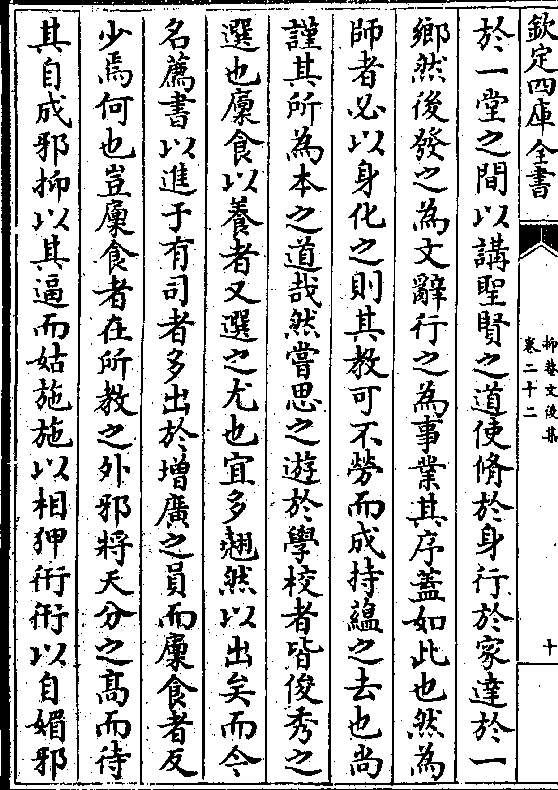 欽定四庫全書
抑菴文後集
卷二十二
十
於一堂之間以講聖賢之道使脩於身行於家達於一
鄉然後發之為文辭行之為事業其序蓋如此也然為
師者必以身化之則其教可不勞而成持藴之去也尚
謹其所為本之道哉然嘗思之遊於學校者皆俊秀之
選也廩食以養者又選之尤也宜多翹然以出矣而今
名薦書以進于有司者多出於增廣之員而廩食者反
少焉何也豈廩食者在所教之外邪將天分之髙而待
其自成邪抑以其逼而姑施施以相狎衎衎以自媚邪